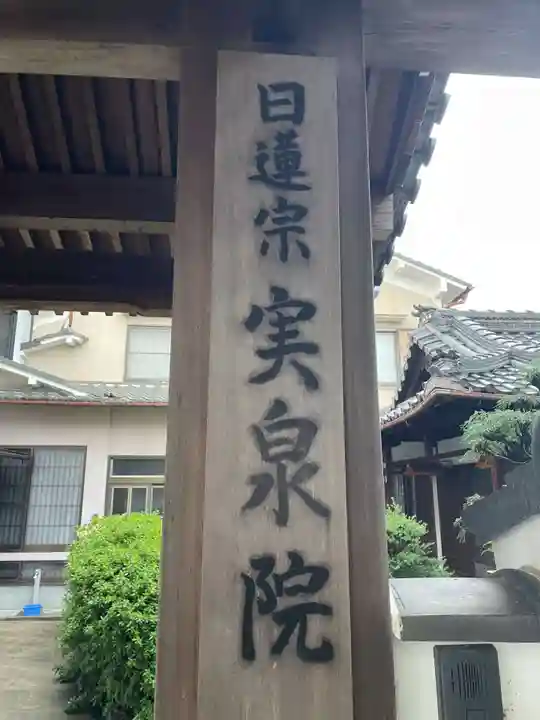 日蓮宗実泉院